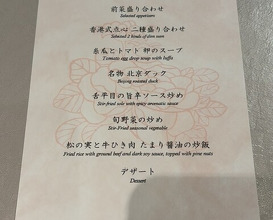 前菜盛り合わせ
Selected appetizers
香港式点心 二種盛り合わせ
Selected 2 kinds of dim sum
糸瓜とトマト 卵のスープ
Tomato egg drop soup with luffa
名物 北京ダック
Beijing roasted duck
舌平目の旨辛ソース炒め
Stir-fried sole with spicy aromatic sauce
旬野菜の炒め
Stir-Fried seasonal vegetable
松の実と牛ひき肉 たまり醤油の炒飯
Fried rice with ground beef and dark soy sauce, topped with pine nuts
デザート
Dessert